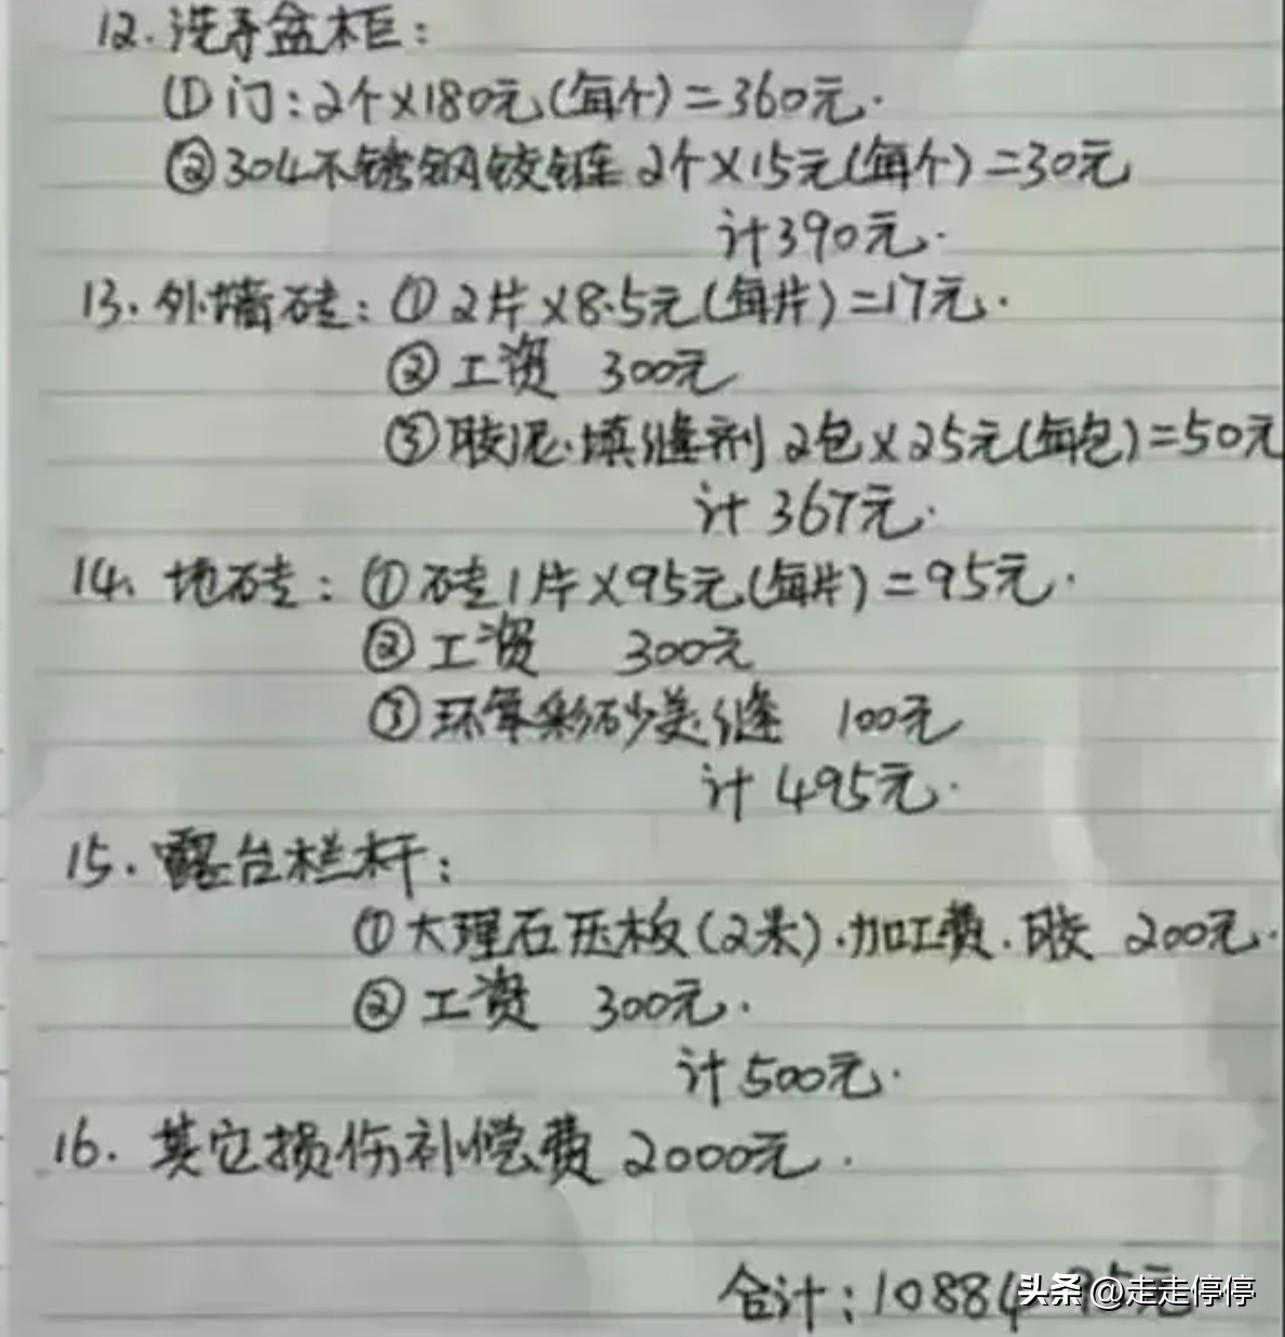 12.洗手盆柜:
①门:2个×180元(每个)=360元.
②304不锈钢铰链 2个×15元(每个)=30元
计390元.
13.外墙砖:①2片×8.5元(每片)=17元.
②工资 300元
③胶泥.填缝剂 2包×25元(每包)=50元
计 367元.
14、地砖:①砖1片×95元(每片)=95元.
②工资 300元
③环氧彩砂美缝 100元
计495元.
15.露台栏杆:
①大理石压板(2米).加工费.胶 200元.
②工资 300元.
计500元.
16.其它损伤补偿费 2000元.
合计:10884 元
头条 @走走停停